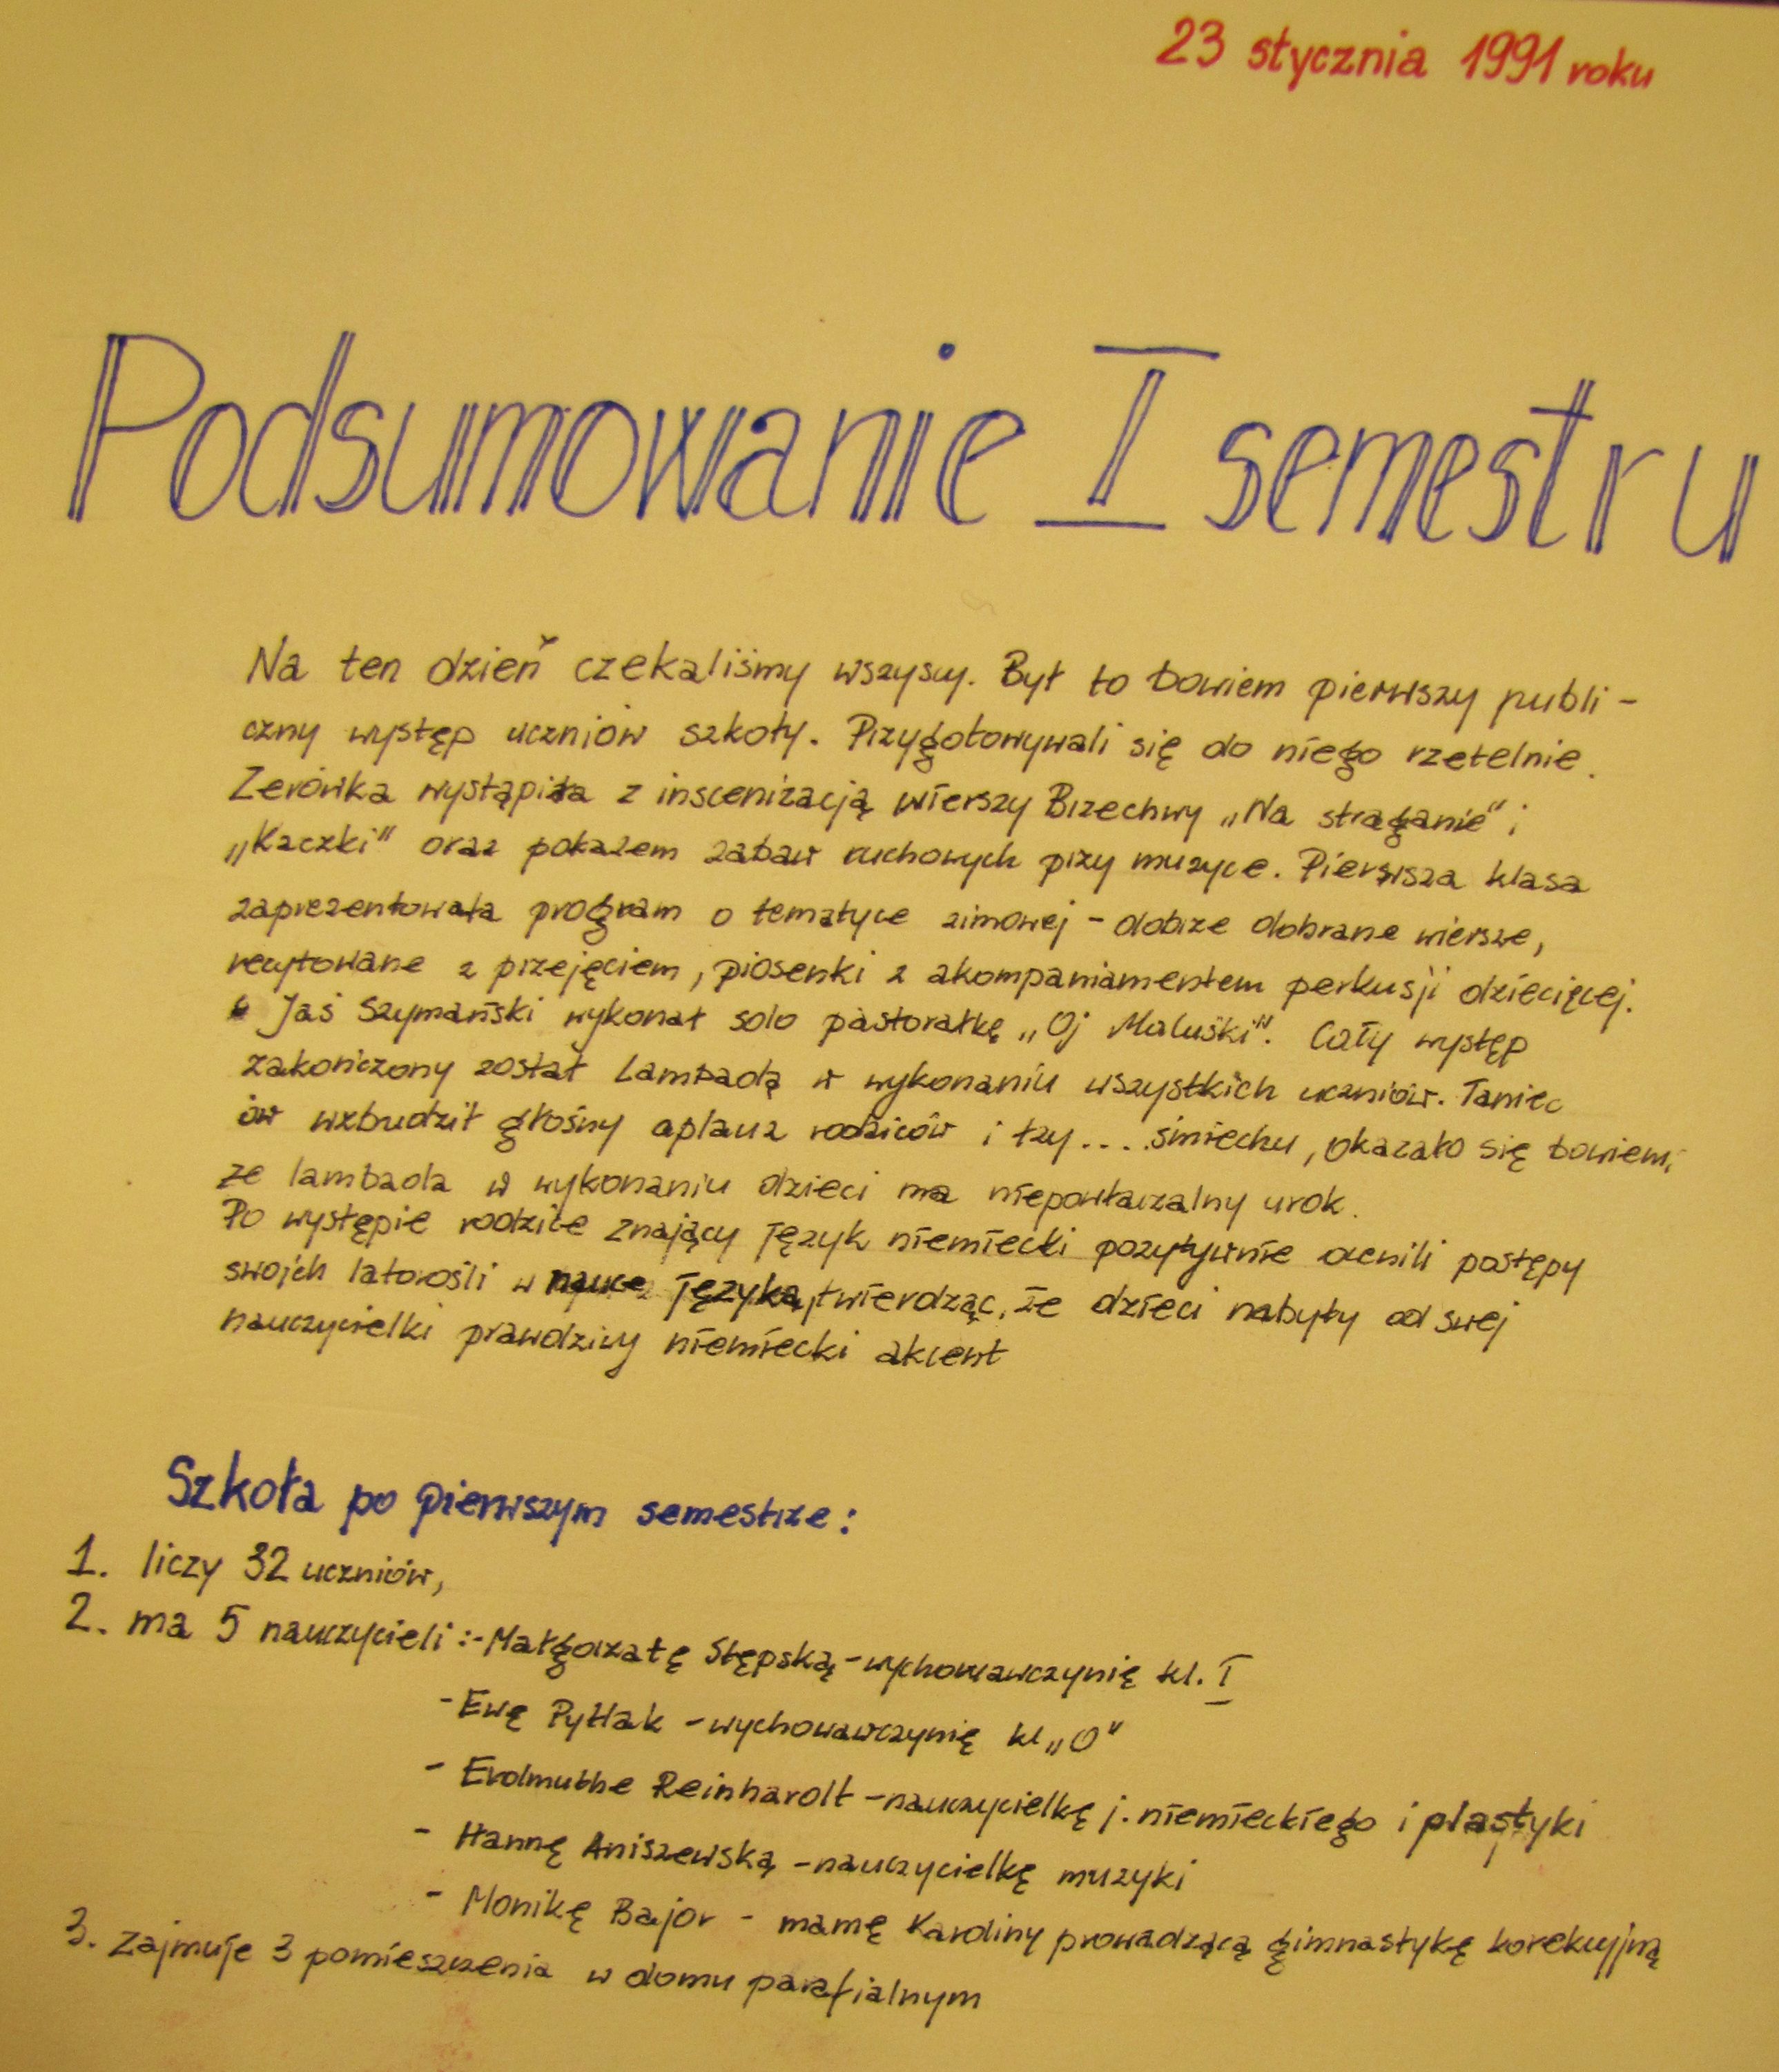 23 stycznia 1991 roku
Podsumowanie I semestru
Na ten dzień czekaliśmy wszyscy. Był to bowiem pierwszy publi-
czny występ uczniów szkoły. Przygotowywali się do niego rzetelnie.
Zerówka wystąpiła z inscenizacją wierszy Brzechwy „Na straganie" i
„Kaczki" oraz pokazem zabaw ruchowych przy muzyce. Pierwsza klasa
zaprezentowała program o tematyce zimowej - dobrze dobrane wiersze,
recytowane z przejęciem, piosenki z akompaniamentem perkusji dziecięcej.
Jaś Szymański wykonał solo pastorałkę „Oj Maluśki". Cały występ
zakończony został Lambadą w wykonaniu wszystkich uczniów. Taniec
ów wzbudził głośny aplauz rodziców i łzy.... śmiechu, okazało się bowiem,
że lambada w wykonaniu dzieci ma niepowtarzalny urok.
Po występie rodzice znający język niemiecki pozytywnie ocenili postępy
swoich latorośli w nauce języka, twierdząc, że dzieci nabyły od swej
nauczycielki prawdziwy niemiecki akcent
Szkoła po pierwszym semestrze:
1. liczy 32 uczniów,
2. ma 5 nauczycieli:-Małgorzatę Stępską-wychowawczynię kl. I
- Ewę Pytlak - wychowawczynię kl „O"
- Erdmuthe Reinhardt - nauczycielkę j. niemieckiego i plastyki
- Hannę Aniszewską - nauczycielkę muzyki
- Monikę Bajor - mamę Karoliny prowadzącą gimnastykę korekcyjną
3. Zajmuje 3 pomieszczenia w domu parafialnym